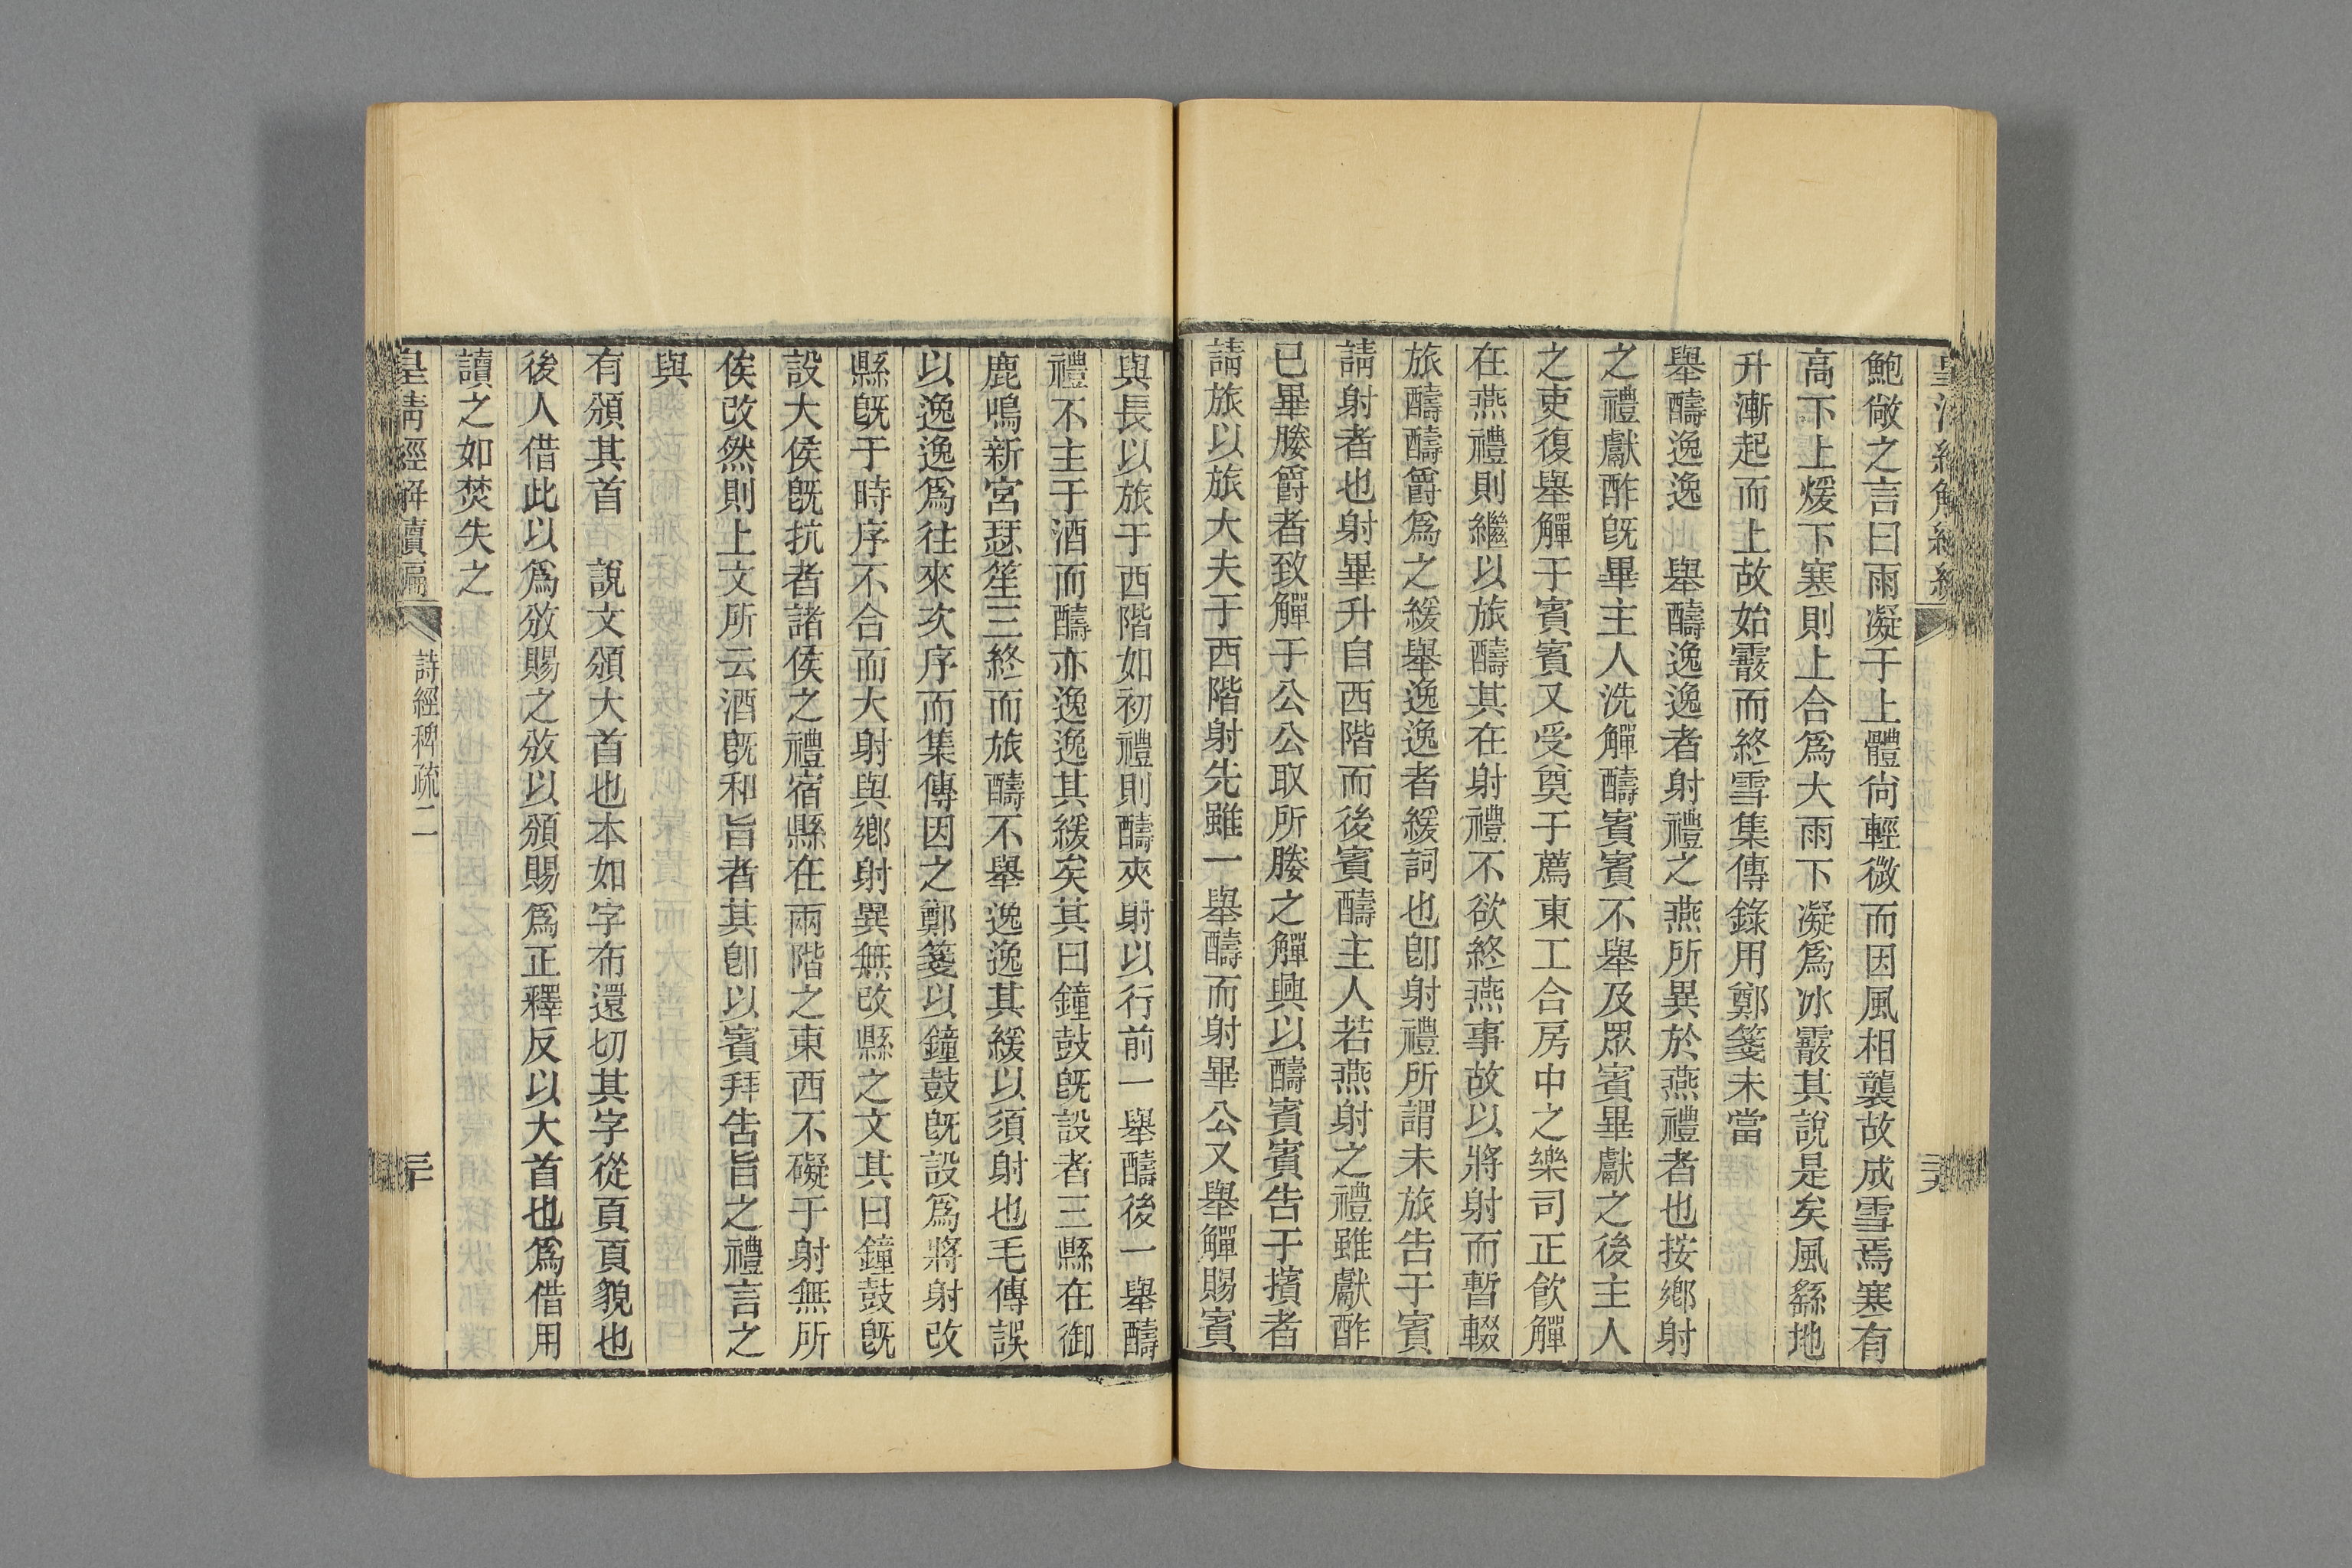 鮑敞之言曰雨凝于上體尙輕微而因風相襲故成雪焉寒有
高下上煖下寒則上合爲大雨下凝爲冰霰其說是矣風繇地
升漸起而上故始霰而終雪集傳錄用鄭箋未當
舉醻逸逸　舉醻逸逸者射禮之燕所異於燕禮者也按鄉射
之禮獻酢旣畢主人洗觶醻賓賓不舉及眾賓畢獻之後主人
之吏復舉觶于賓賓又受奠于薦東工合房中之樂司正飮觶
在燕禮則繼以旅醻其在射禮不欲終燕事故以將射而暫輟
旅醻醻爵爲之緩舉逸逸者緩詞也卽射禮所謂未旅告于賓
請射者也射畢升自西階而後賓醻主人若燕射之禮雖獻酢
已畢媵爵者致觶于公公取所媵之觶興以醻賓賓告于擯者
請旅以旅大夫于西階射先雖一舉醻而射畢公又舉觶賜賓
與長以旅于西階如初禮則醻夾射以行前一舉醻後一舉醻
禮不主于酒而醻亦逸逸其緩矣其曰鐘鼓旣設者三縣在御
鹿鳴新宮瑟笙三終而旅醻不舉逸逸其緩以須射也毛傳誤
以逸逸爲往來次序而集傳因之鄭箋以鐘鼓旣設爲將射改
縣旣于時序不合而大射與鄉射異無改縣之文其曰鐘鼓旣
設大侯旣抗者諸侯之禮宿縣在兩階之東西不礙于射無所
俟改然則上文所云酒旣和旨者其卽以賓拜告旨之禮言之
與
有頒其首　說文頒大首也本如字布還切其字從頁頁貌也
後人借此以爲攽賜之攽以頒賜爲正釋反以大首也爲借用
讀之如焚失之
皇清經解續編
詩經稗疏二